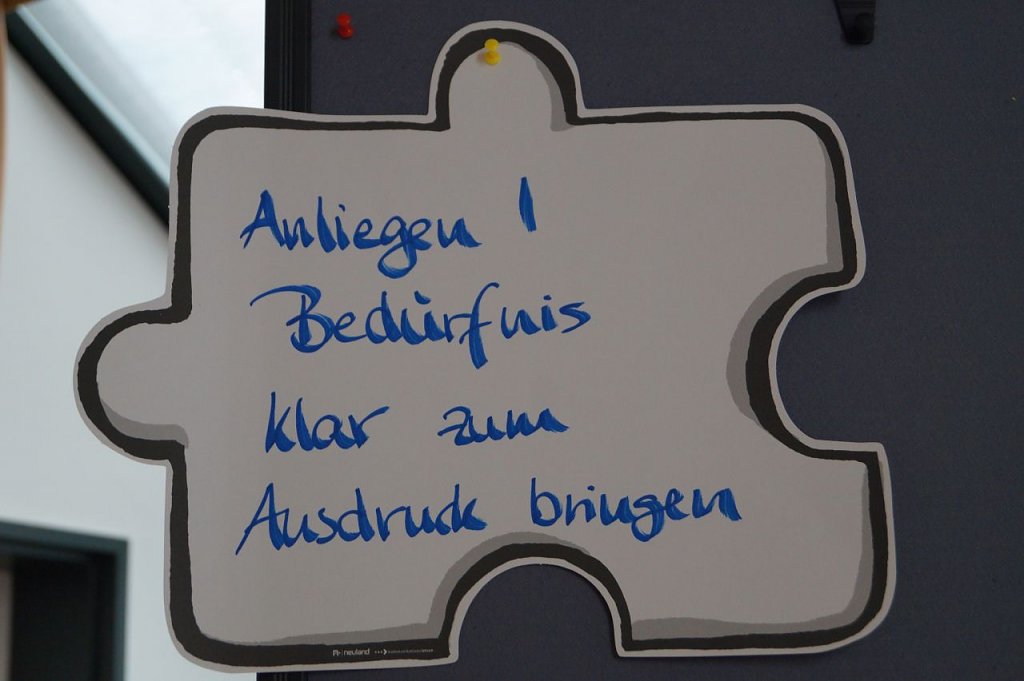 Anliegen /
Bedürfnis
klar zum
Ausdruck bringen
neuland